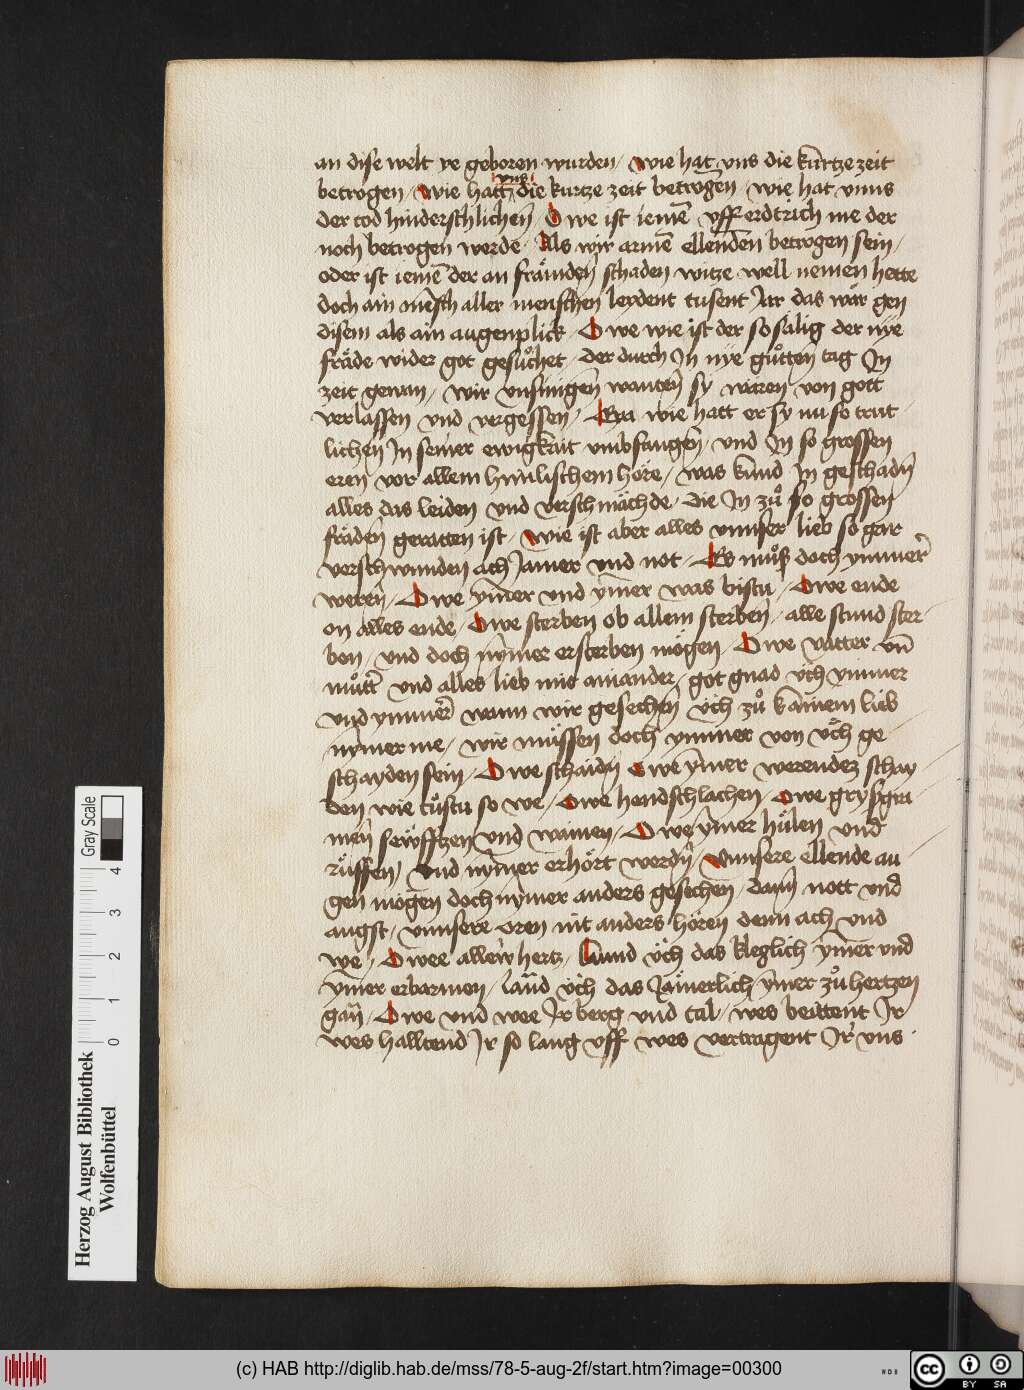 an dise welt ye geboren wurden / wie hat vns die kurtze zeit
betrogen / wie hatt vns die kurtze zeit betrogen / wie hat vnns
der tod hinderschlichen / Owe ist iemē vff erdtrich me der
noch betrogen werde / Als wir armē ellenden betrogen sein /
oder ist iemē der an främden schaden witze well nemen hette
doch ain mēsch aller menschen leydent tusent Jar das wär gen
disem als ain augenplick / Owe wie ist der so sälig der nye
fräde wider got gesůchet / der durch In nye gůtten tag In
zeit gewan / wir vnsinnigen wanten sy wären von gott
verlassen vnd vergessen / Eya wie hatt er sy nu so trut
lichen In seiner ewigkait vmbfangen / vnd In so grossen
eren vor allem himlischem höre / was kund In geschadn̄
alles das leiden vnd verschmächde / die In zů so grossen
fräden geratten ist / wie ist aber alles vnnser lieb so gar
verschwunden ach Jamer vnd not / Es můß doch ymmer
weren / Owe ym̄er vnd ym̄er was bistu / Owe ende
on alles ende / Owe sterben ob allem sterben / alle stund ster
ben / vnd doch nym̄er ersterben mögen / Owe vatter vn̄
můttr vnd alles lieb mit ainander / got gnad v̈ch ymmer
vnd ymmer wann wir gesechen v̈ch zů kainem lieb
nym̄er me / wir müssen doch ymmer von v̈ch ge
schayden sein / Owe schaidn̄ owe ym̄er werendez schay
den wie tůstu so we / owe hendschlachen / owe grysgra
men sewfftzen vnd wainen / Owe ym̄er hülen vnd
rüffen / vnd nym̄er erhört werdn̄ / Vnnsere ellende au
gen mögen doch nym̄er anders gesechen / dann nott vnd
angst / vnnsere oren nit anders hören denn ach vnd
we / Owee allew hertz / laund v̈ch das kleglich ym̄er vnd
ym̄er erbarmen / laūd v̈ch das Jämerlich ym̄er zů hertzen
gan / Owe vnd wee Ir berg vnd tal / wes beittent Ir
wes halltend Ir so lang vff wes vertragent Ir vns
Gray Scale
4
3
2
1
0
Herzog August Bibliothek
Wolfenbüttel
(c) HAB http://diglib.hab.de/mss/78-5-aug-2f/start.htm?image=00300
WDB
cc
BY SA